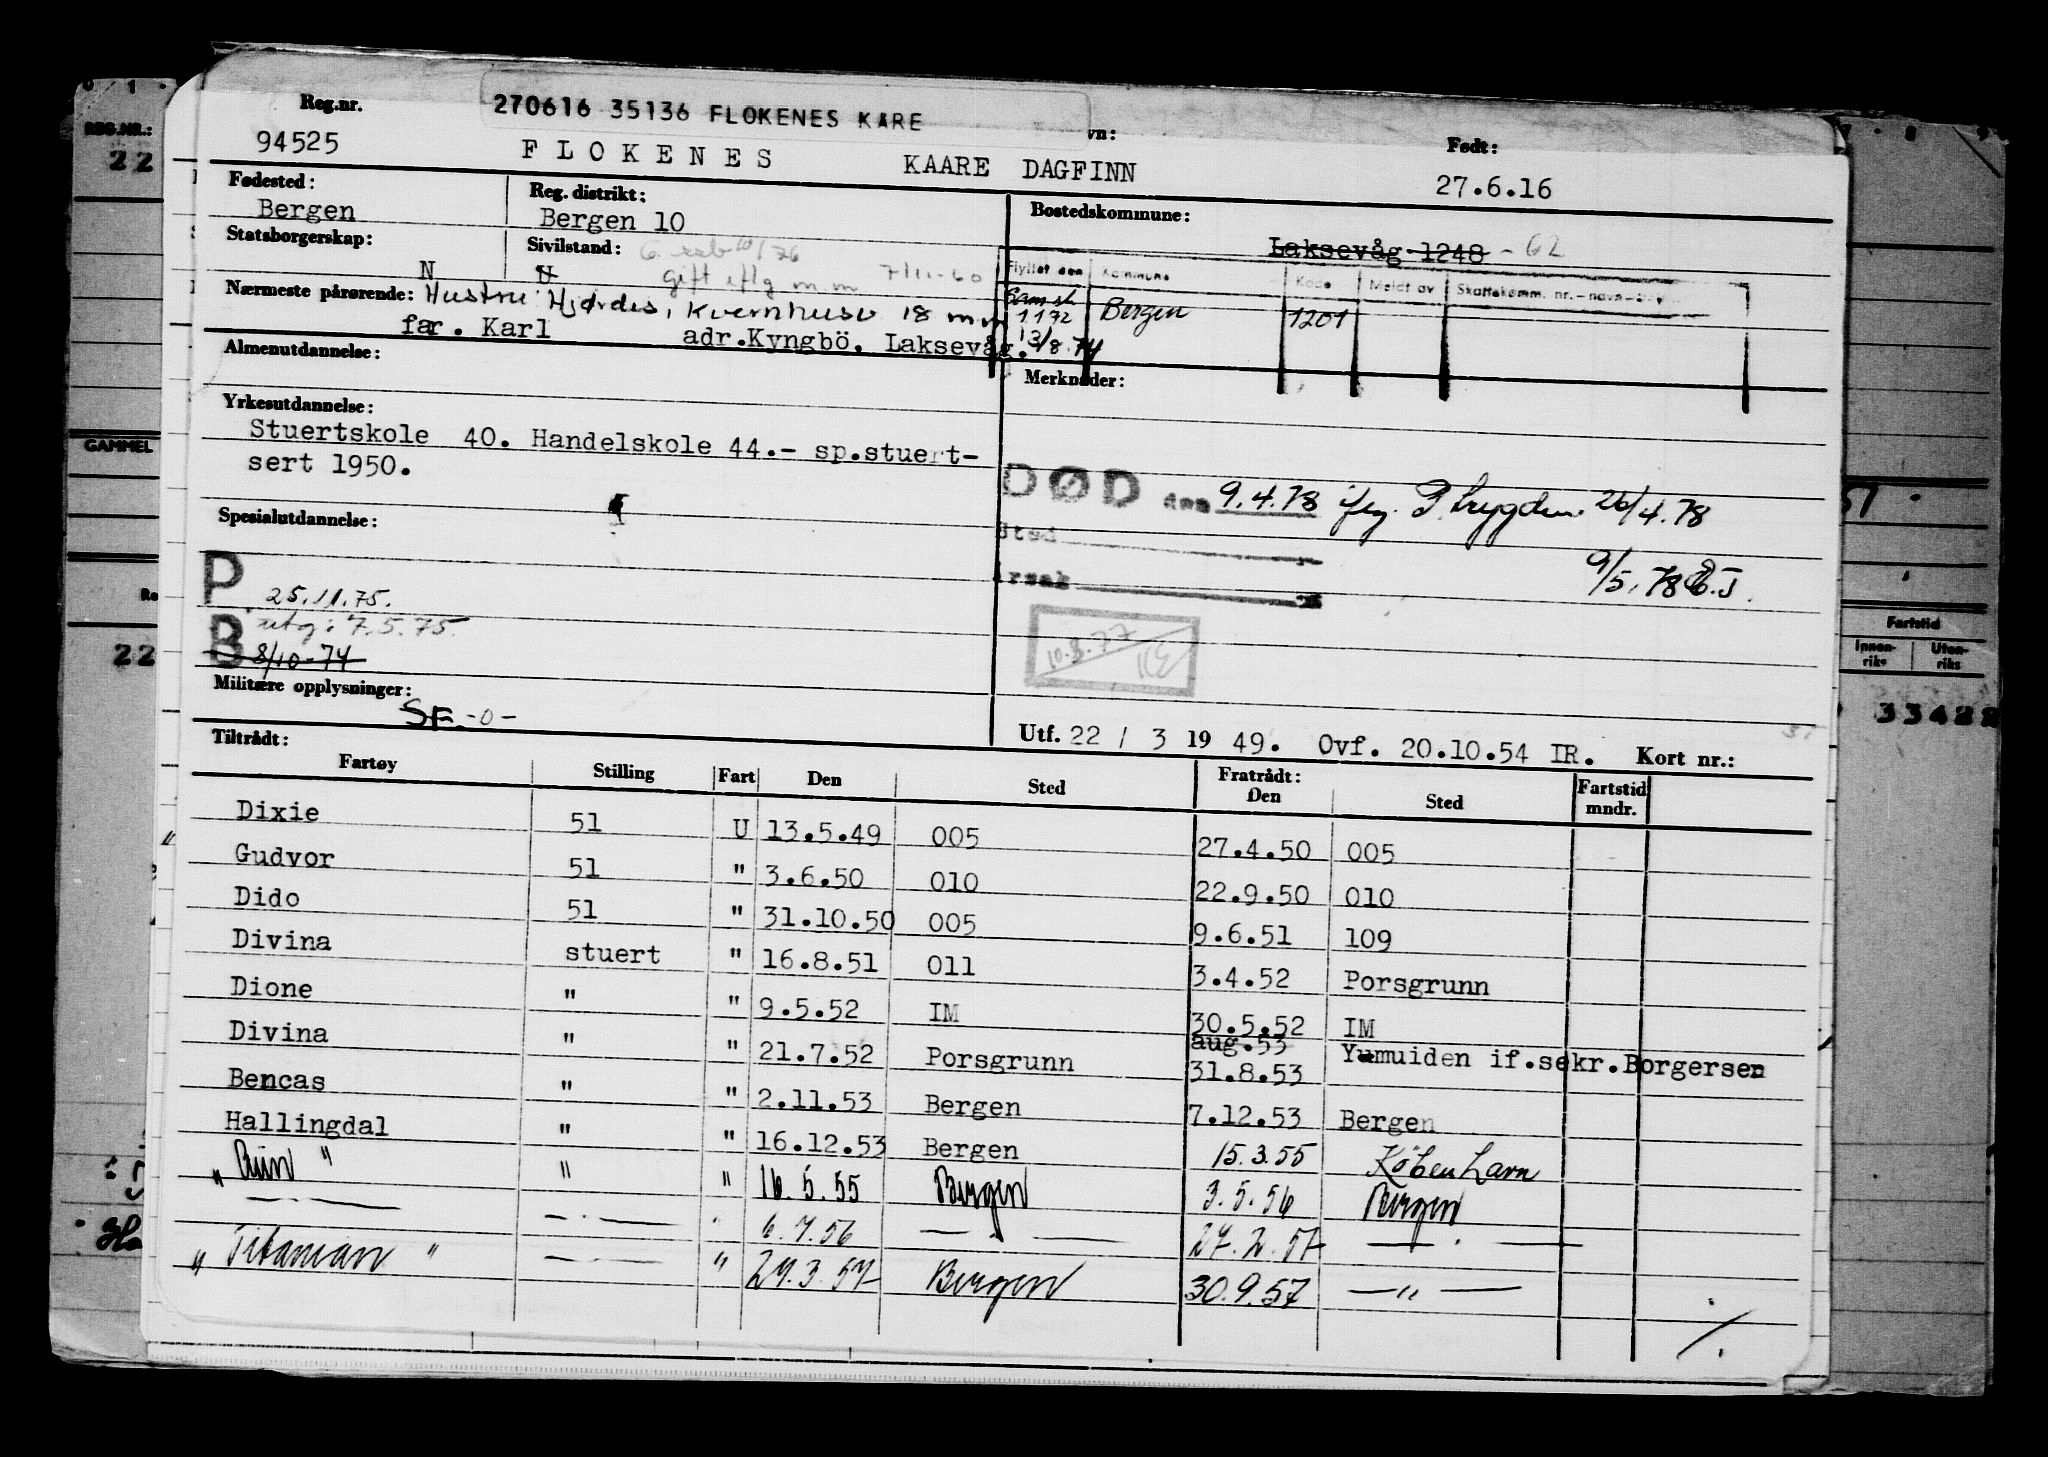 Reg.nr.
270616 35136 FLOKENES KARE
94525 FLOKENES KAARE DAGFINN
vn:
Født:
27.6.16
Fødested: Bergen
Reg. distrikt: Bergen 10
Bostedskommune:
Laksevåg 1248 - 62
Statsborgerskap: N
Sivilstand: U
gift iflg m.m 7/11-60
Flyttet den Kommune Kode Meldt av Skattekomm. nr.-navn-
1172 Bergen 1201
13/8.74
Nærmeste pårørende: Hustru Hjørdis, Kvernhusv 18 m.m
far. Karl adr.Kyngbö, Laksevåg.
Almenutdannelse:
Merknader:
Yrkesutdannelse:
Stuertskole 40. Handelskole 44.- sp.stuert-
sert 1950.
DØD den 9.4.78 iflg. P.trygden 26/4.78
Sted
Årsak
9/5.78
Spesialutdannelse:
P 25.11.75.
utg: 7.5.75.
B 8/10-74
10.8.77
Militære opplysninger:
SF. -0-
Utf. 22 / 3 19 49. Ovf. 20.10.54 IR. Kort nr.:
Tiltrådt: Fratrådt:
Fartøy Stilling Fart Den Sted Den Sted Fartstid mndr.
Dixie 51 U 13.5.49 005 27.4.50 005
Gudvor 51 " 3.6.50 010 22.9.50 010
Dido 51 " 31.10.50 005 9.6.51 109
Divina stuert " 16.8.51 011 3.4.52 Porsgrunn
Dione " " 9.5.52 IM 30.5.52 IM
aug.53
Divina " " 21.7.52 Porsgrunn 31.8.53 Yumuiden if.sekr.Borgersen
Bencas " " 2.11.53 Bergen 7.12.53 Bergen
Hallingdal " " 16.12.53 Bergen 15.3.55 København
" " " 16.5.55 Bergen 3.5.56 Bergen
— — 6.7.56 — 27.2.57 —
" Titanian " — " 29.3.57 Bergen 30.9.57 — " —
REG.NR.:
22
GAMMEL
22
Fartstid
Innen-
riks
Uten-
riks
33488